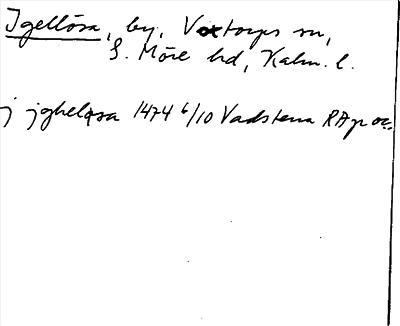 Igellösa, by, Voxtorps sn,
S. Möre hd, Kalm. l.
j jgheløsa 1474 6/10 Vadstena RAp or.